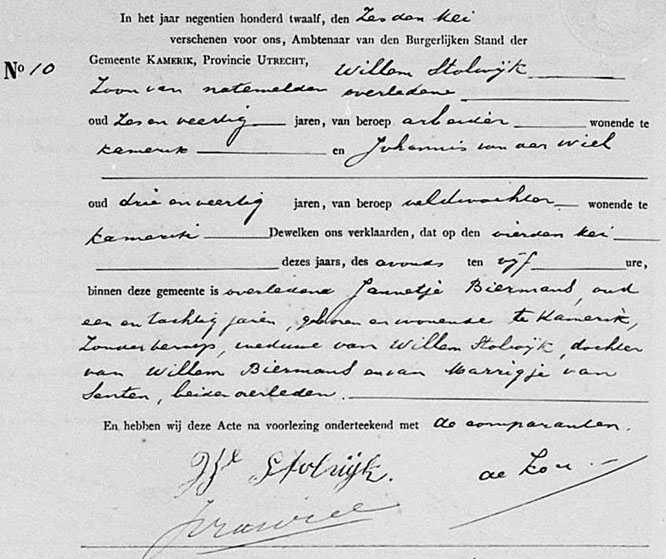 In het jaar negentien honderd twaalf, den Zesden Mei
verschenen voor ons, Ambtenaar van den Burgerlijken Stand der
Gemeente KAMERIK, Provincie UTRECHT, Willem Stolwijk
No 10
Zoon van natemelden overledene
oud Zes en veertig jaren, van beroep arbeider wonende te
Kamerik en Johannis van der Wiel
oud drie en veertig jaren, van beroep veldwachter wonende te
Kamerik Dewelken ons verklaarden, dat op den vierden Mei
dezes jaars, des avonds ten vijf ure,
binnen deze gemeente is overleden Jannetje Biermans, oud
een en tachtig jaren, geboren en wonende te Kamerik,
Zonder beroep, weduwe van Willem Stolwijk, dochter
van Willem Biermans en van Marrigje van
Senten, beiden overleden.
En hebben wij deze Acte na voorlezing onderteekend met de comparanten.
W Stolwijk.